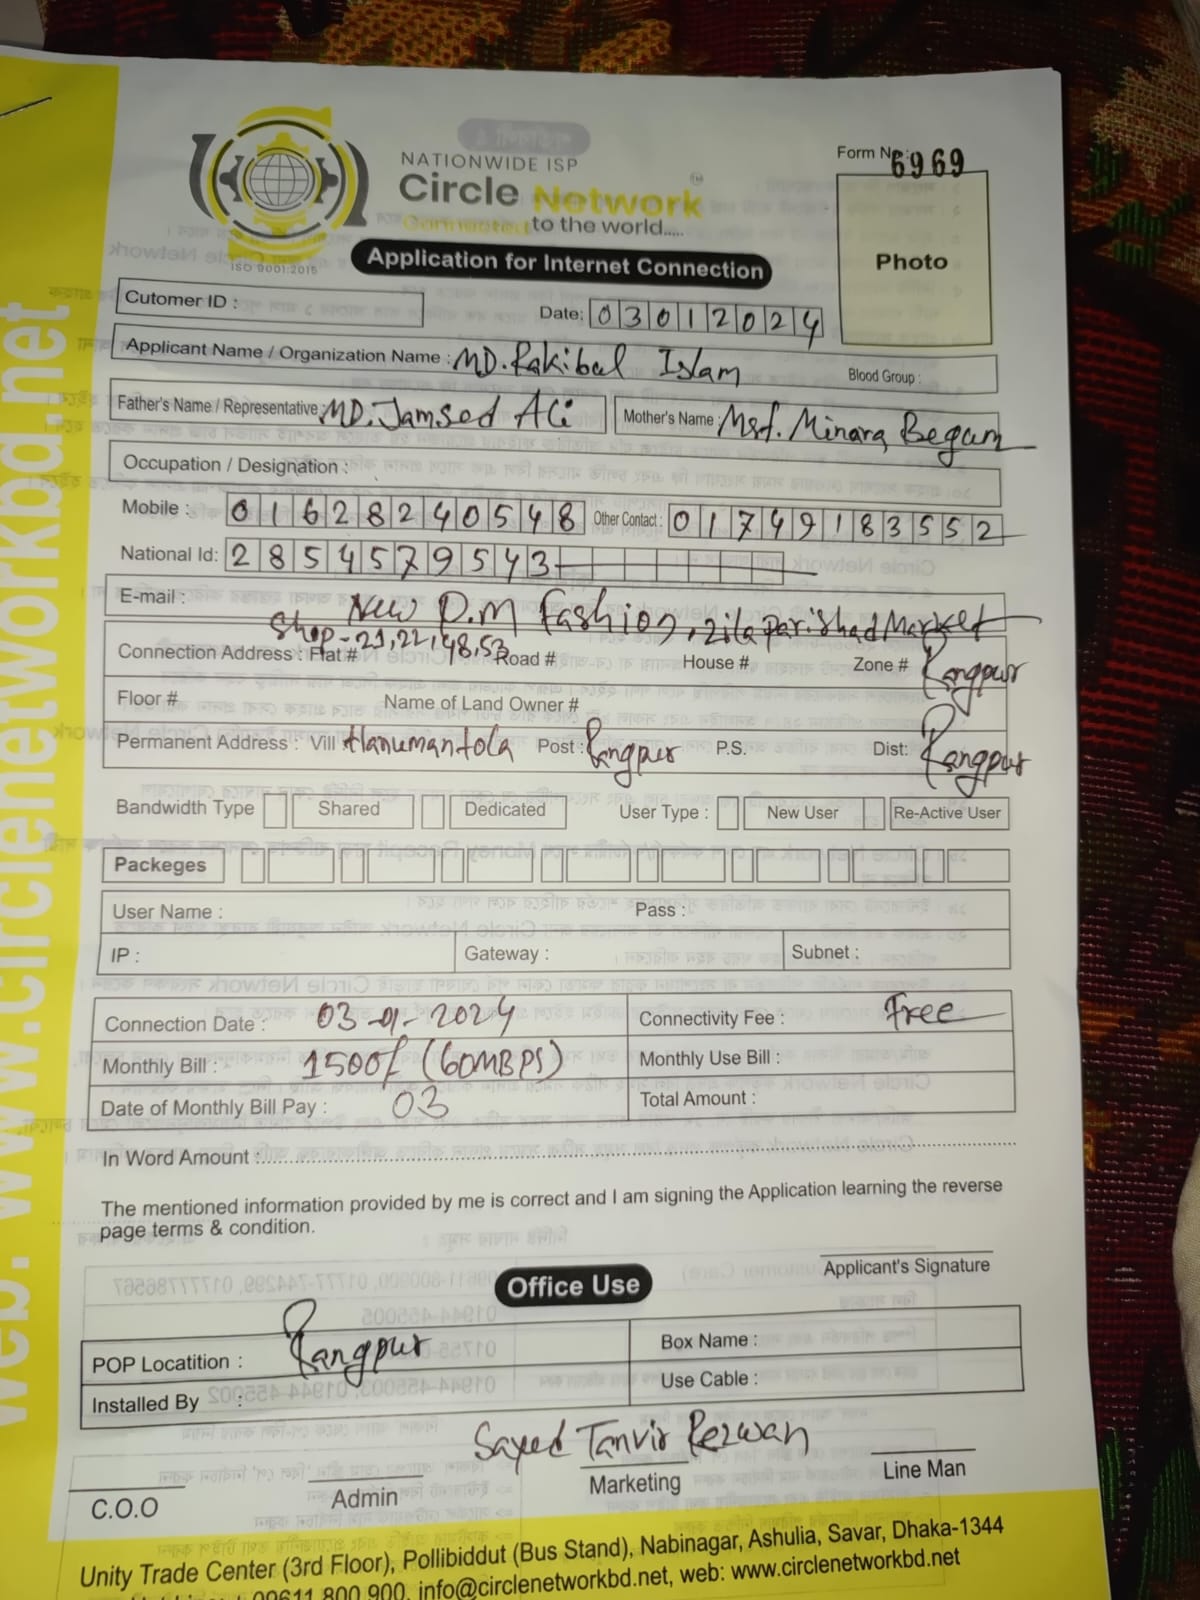 Web: www.circlenetworkbd.net
NATIONWIDE ISP
Circle Network
Connected to the world.....
ISO 9001:2015
Form No: 6969
Photo
Application for Internet Connection
Cutomer ID :
Date: 03012024
Applicant Name / Organization Name : MD. Rakibul Islam
Blood Group :
Father's Name / Representative : MD. Jamsed Ali
Mother's Name : Mst. Minara Begum
Occupation / Designation :
Mobile : 01628240548 Other Contact : 01749183552
National Id: 2854579543
E-mail :
New D.M Fashion, zila parishad Market
Shop-21,22,48,53
Connection Address : Flat # Road # House # Zone # Rangpur
Floor # Name of Land Owner #
Permanent Address : Vill Hanumantola Post : Rangpur P.S. Dist: Rangpur
Bandwidth Type Shared Dedicated User Type : New User Re-Active User
Packeges
User Name : Pass :
IP : Gateway : Subnet :
Connection Date : 03-01-2024 Connectivity Fee : Free
Monthly Bill : 1500/ (60MBPS) Monthly Use Bill :
Date of Monthly Bill Pay : 03 Total Amount :
In Word Amount :
The mentioned information provided by me is correct and I am signing the Application learning the reverse
page terms & condition.
Applicant's Signature
Office Use
POP Locatition : Rangpur Box Name :
Installed By : Use Cable :
Sayed Tanvir Rezwan
C.O.O Admin Marketing Line Man
Unity Trade Center (3rd Floor), Pollibiddut (Bus Stand), Nabinagar, Ashulia, Savar, Dhaka-1344
09611 800 900, info@circlenetworkbd.net, web: www.circlenetworkbd.net